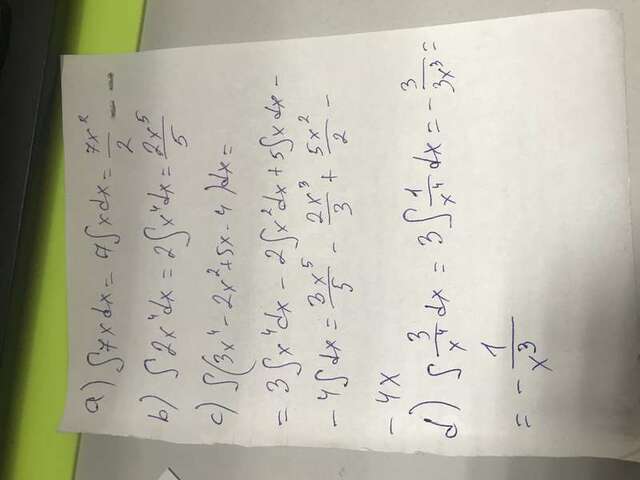 a) ∫7xdx = 7∫xdx = 7x²/2
b) ∫2x⁴dx = 2∫x⁴dx = 2x⁵/5
c) ∫(3x⁴ - 2x² + 5x - 4)dx =
= 3∫x⁴dx - 2∫x²dx + 5∫xdx -
- 4∫dx = 3x⁵/5 - 2x³/3 + 5x²/2 -
- 4x
d) ∫3/x⁴ dx = 3∫1/x⁴ dx = -3/3x³ =
= -1/x³